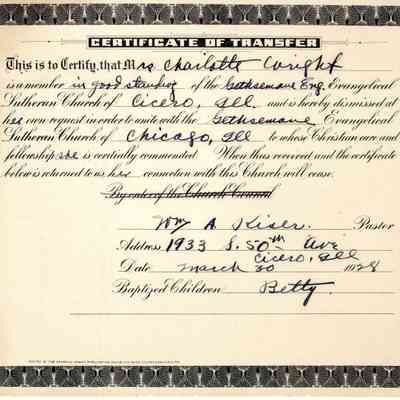 CERTIFICATE OF TRANSFER
This is to Certify, that Mrs Charlotte Wright
is a member in good standing of the Gethsemane Eng. Evangelical
Lutheran Church of Cicero, Ill. and is hereby dismissed at
her own request in order to unite with the Gethsemane Evangelical
Lutheran Church of Chicago, Ill to whose Christian care and
fellowship she is cordially commended. When thus received and the certificate
below is returned to us her connection with this Church will cease.
By order of the Church Council
Wm A. Kiser Pastor
Address 1933 S. 50th Ave
Cicero, Ill
Date March 30 1928
Baptized Children Betty.